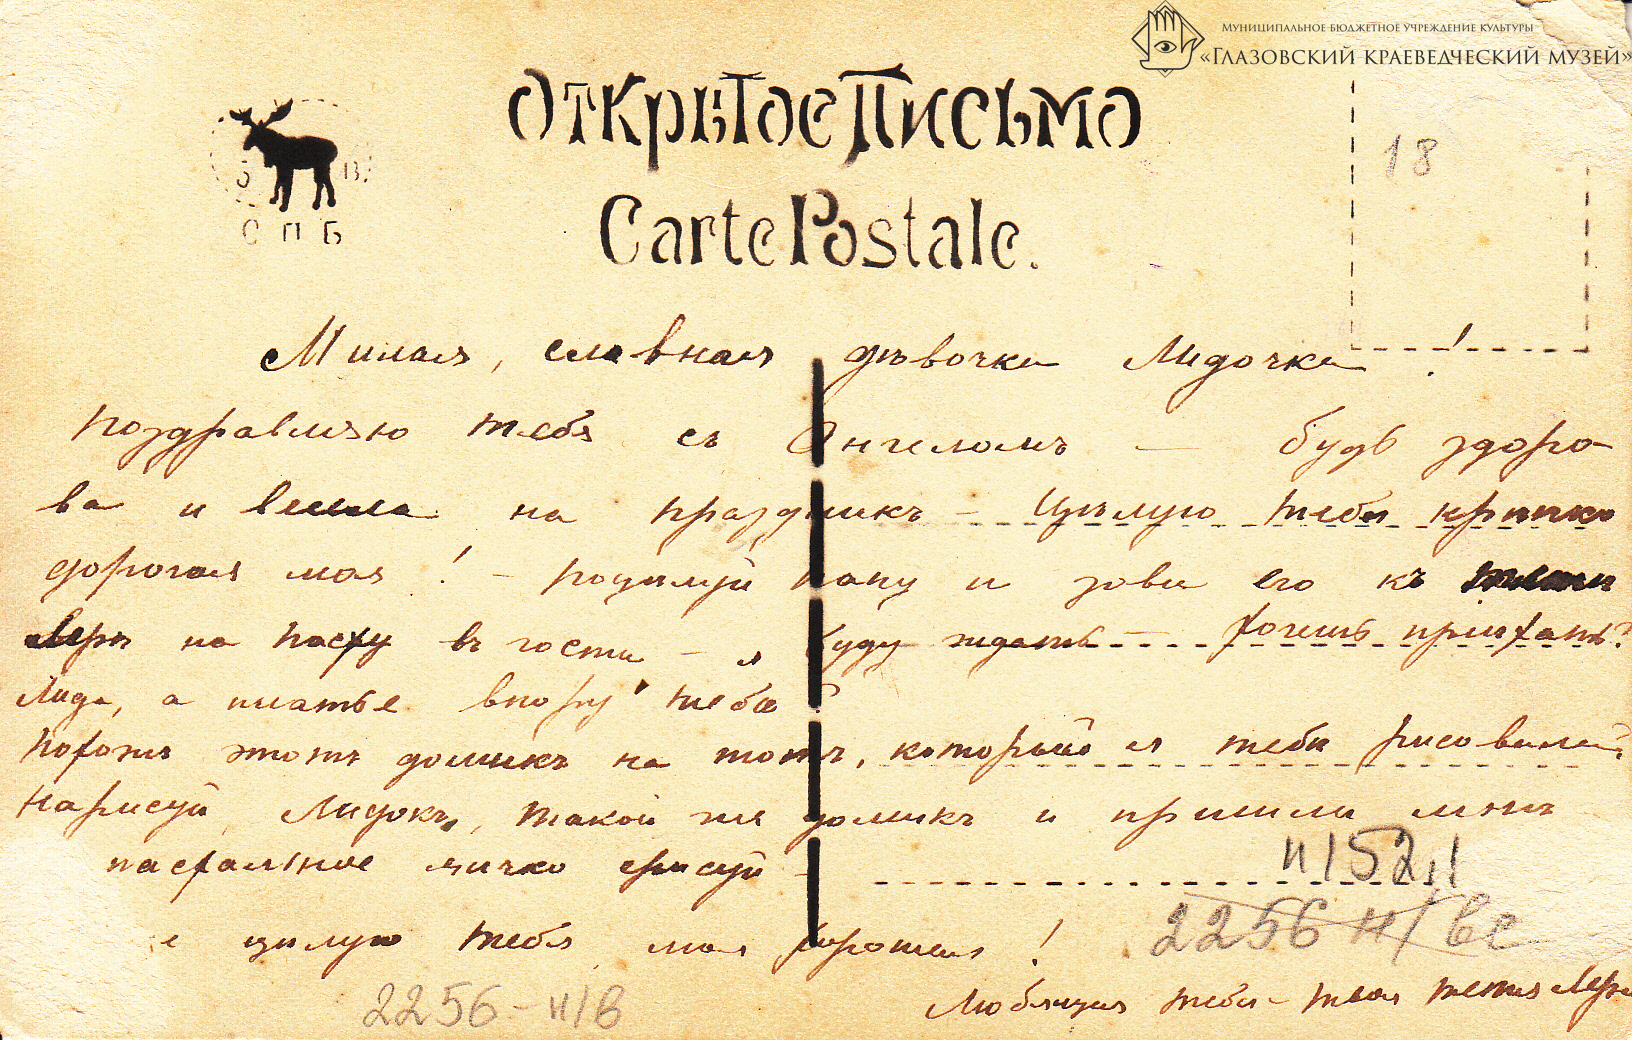 МУНИЦИПАЛЬНОЕ БЮДЖЕТНОЕ УЧРЕЖДЕНИЕ КУЛЬТУРЫ
«ГЛАЗОВСКИЙ КРАЕВЕДЧЕСКИЙ МУЗЕЙ»
Открытое Письмо
18
Б В.
СПБ
Carte Postale.
Милая, славная дѣвочка Лидочка!
поздравляю тебя съ Ангеломъ — будь здоро-
ва и весела на праздникъ — Цѣлую тебя крѣпко
дорогая моя! — поцѣлуй папу и зови его къ тети
Лерѣ на Пасху въ гости — я буду ждать — Хочешь приѣхать?
Лида, а платье впору тебѣ?
Похожъ этотъ домикъ на тотъ, который я тебѣ рисовала?
Нарисуй, Лидокъ, такой же домикъ и пришли мнѣ
пасхальное яичко срисуй —
цѣлую тебя моя хорошая!
н/52,1
2256 н/ве
2256-н/В
Любящая тебя — твоя тетя Лера